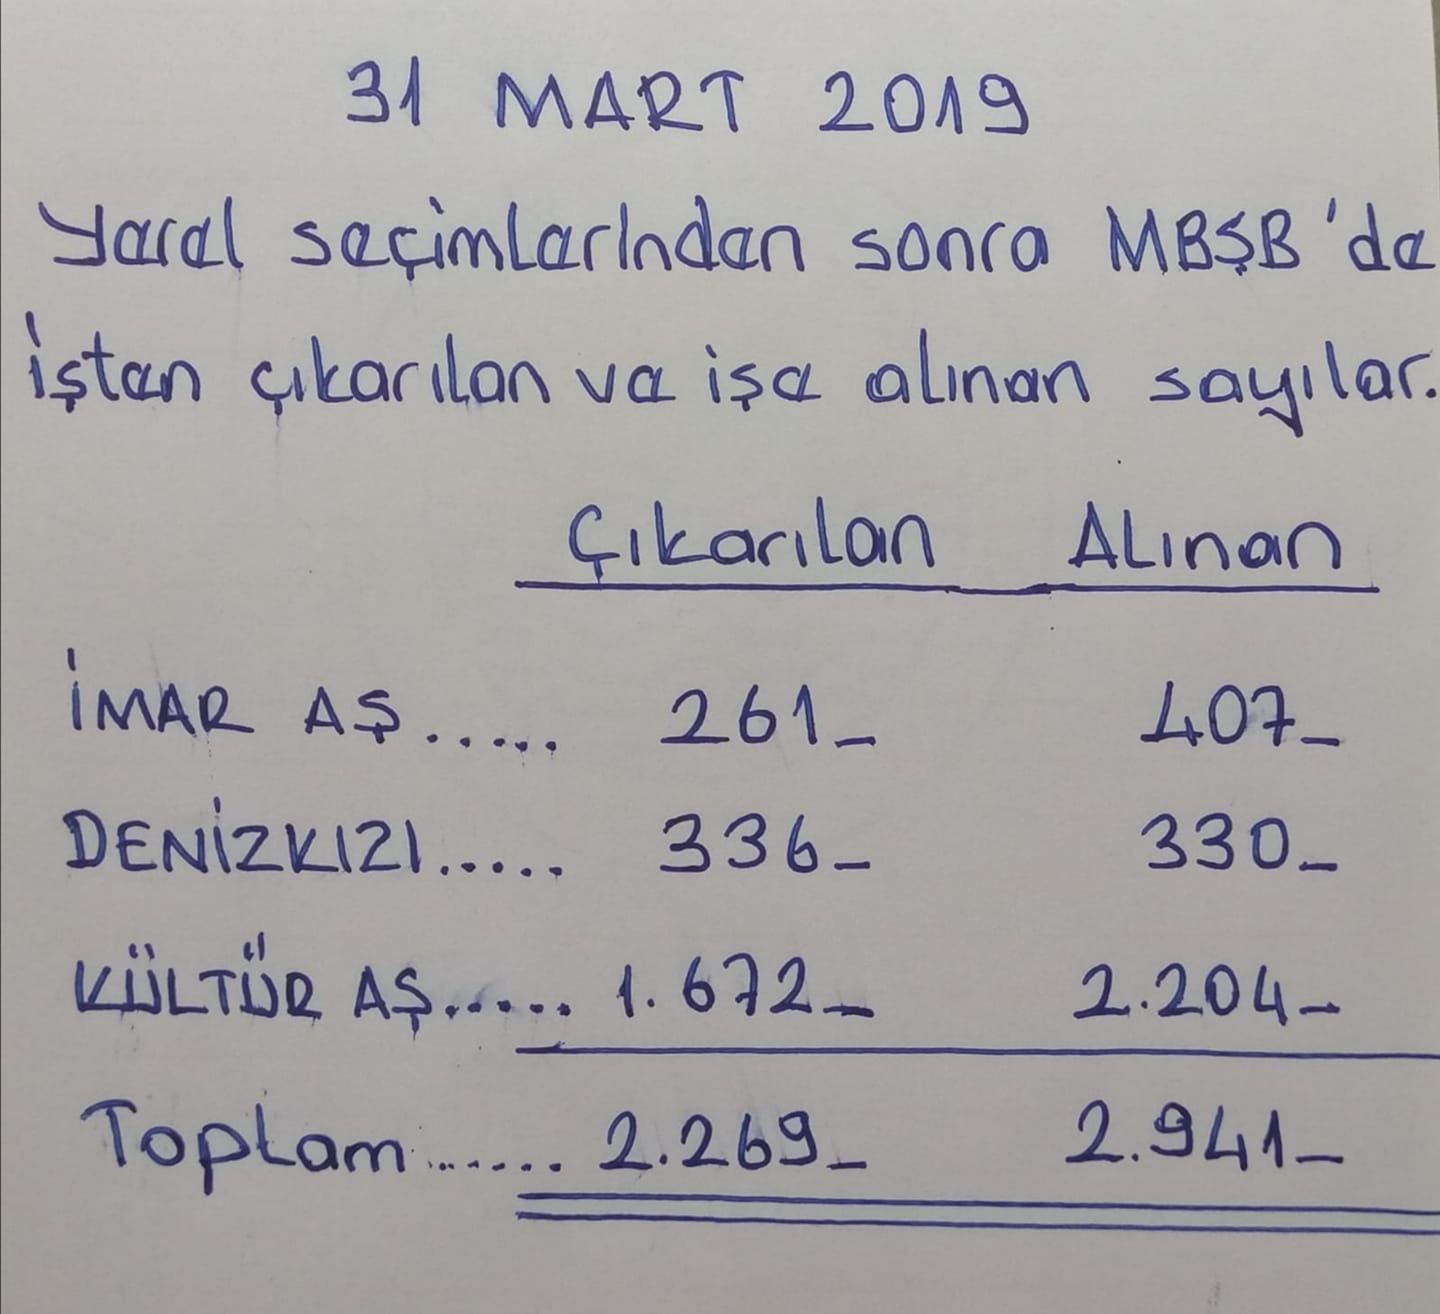 31 MART 2019
Yerel seçimlerinden sonra MBŞB'de
işten çıkarılan ve işe alınan sayılar.
Çıkarılan Alınan
İMAR AŞ..... 261_ 407_
DENİZKIZI..... 336_ 330_
KÜLTÜR AŞ..... 1.672_ 2.204_
Toplam....... 2.269_ 2.941_